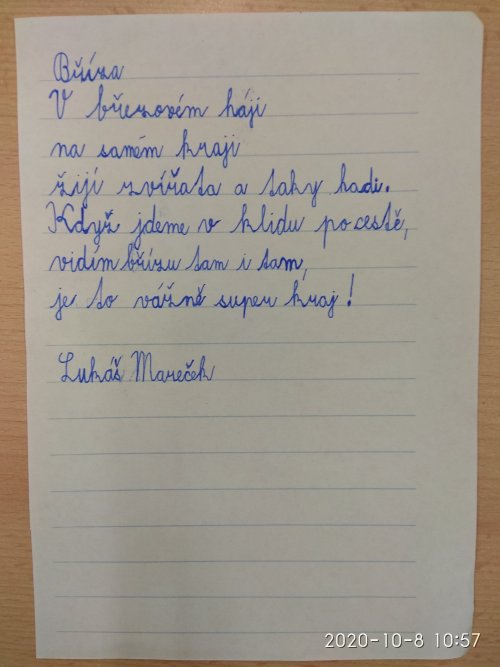 Bříza
V březovém háji
na samém kraji
žijí zvířata a taky hadi.
Když jdeme v klidu po cestě,
vidím břízu tam i tam,
je to vážně super kraj!
Lukáš Mareček
2020-10-8 10:57